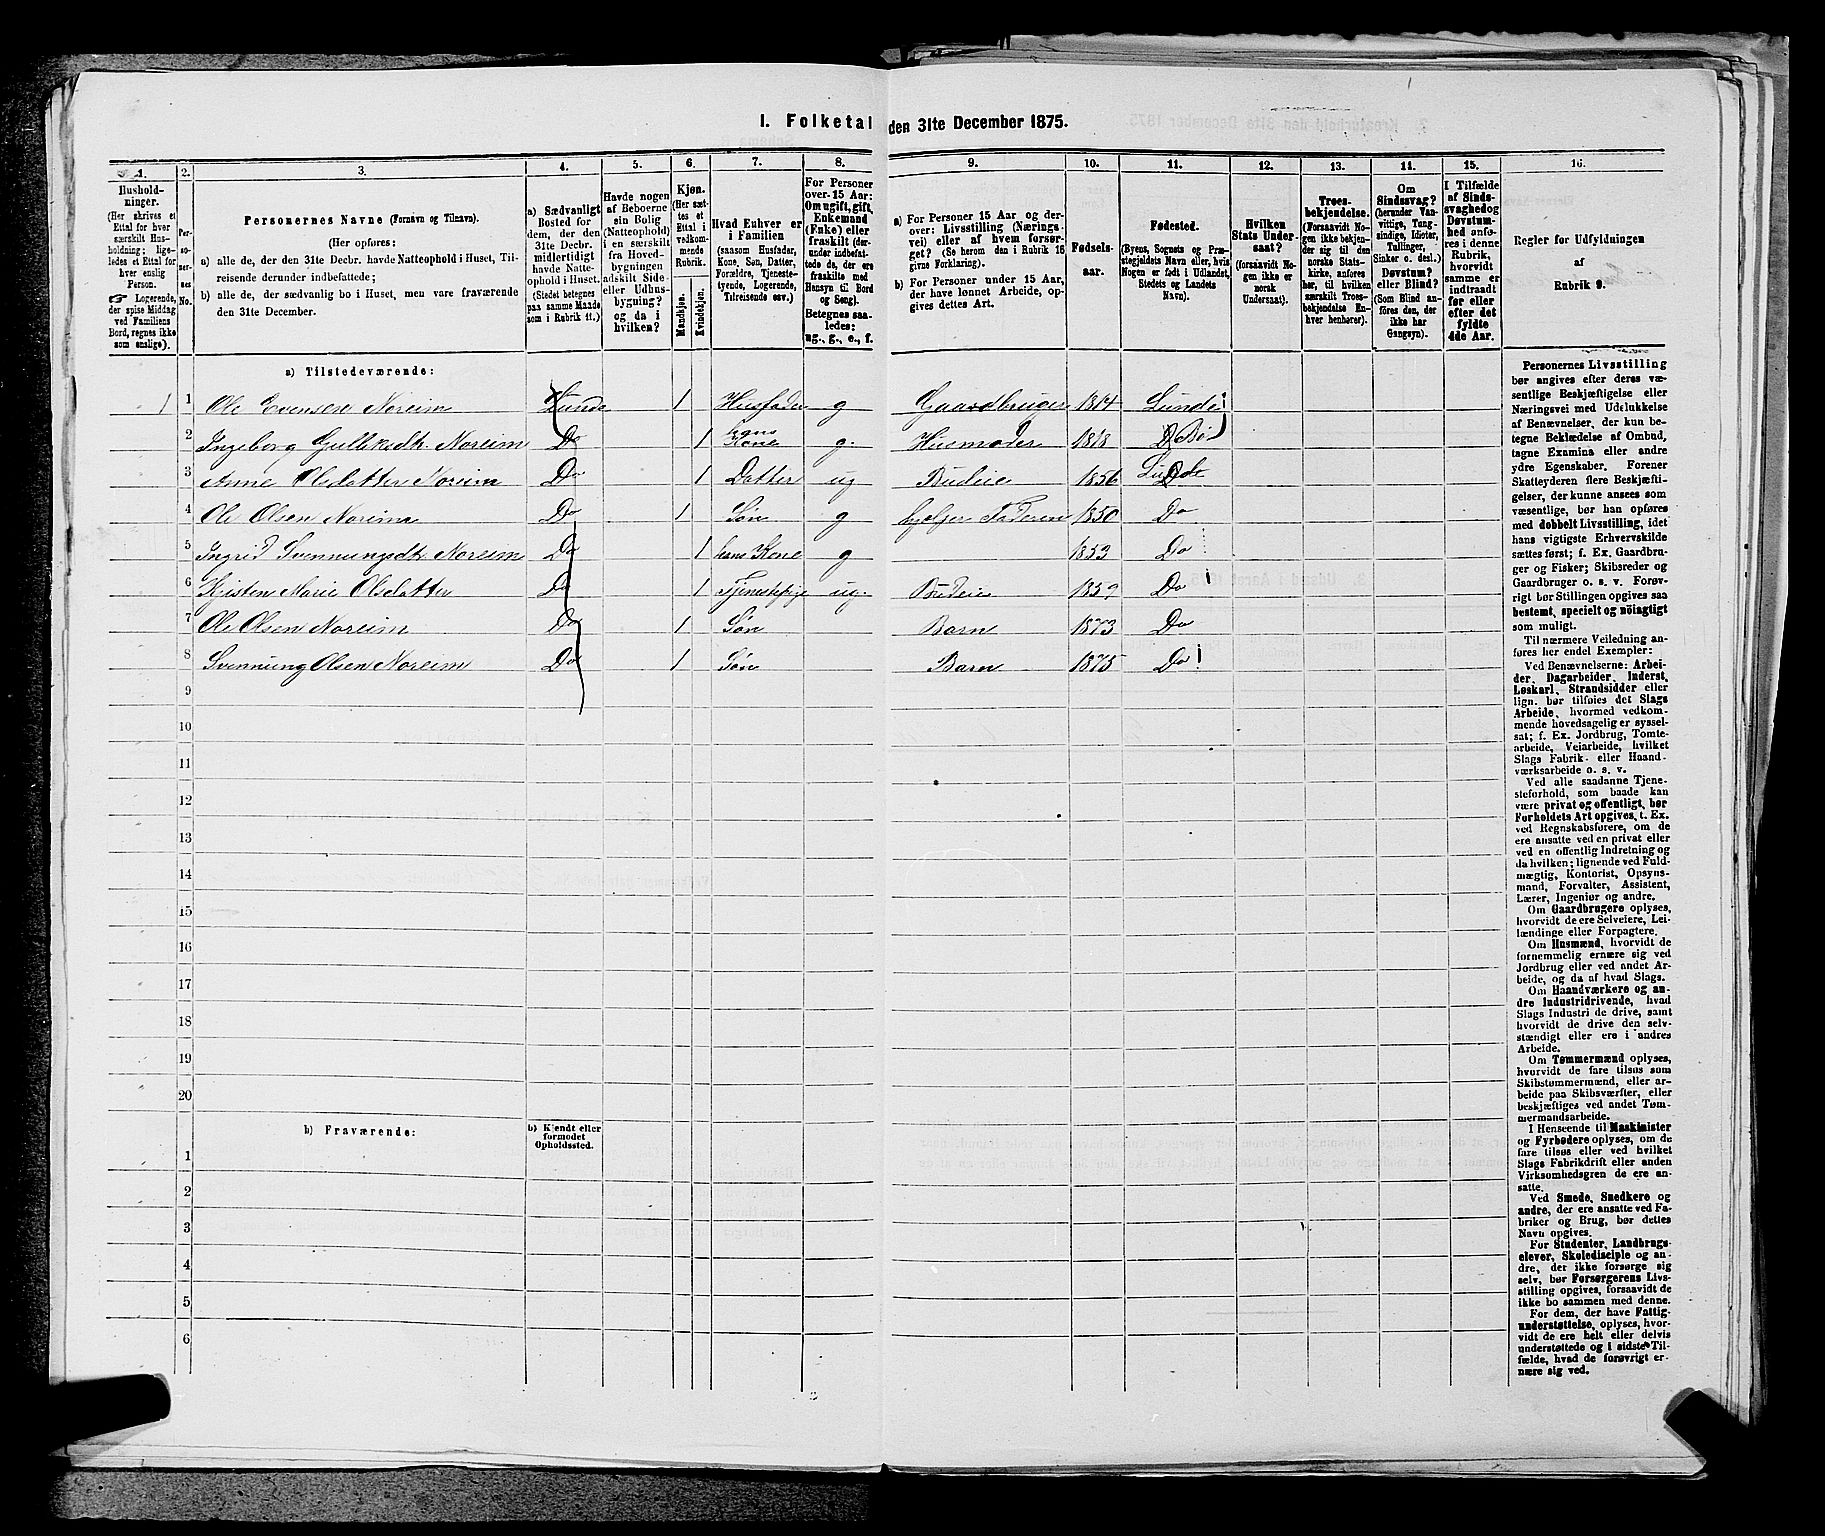 I. Folketal den 31te December 1875.
1. 2. 3. 4. 5. 6. 7. 8. 9. 10. 11. 12. 13. 14. 15. 16.
Hushold-
ninger.
(Her skrives et
Ettal for hver
særskilt Hus-
holdning; lige-
ledes et Ettal for
hver enslig
Person.
☞ Logerende,
der spise Middag
ved Familiens
Bord, regnes ikke
som enslige).
Per-
so-
ner-
nes
No.
Personernes Navne (Fornavn og Tilnavn).
(Her opføres:
a) alle de, der den 31te Decbr. havde Natteophold i Huset, Til-
reisende derunder indbefattede;
b) alle de, der sædvanlig bo i Huset, men vare fraværende
den 31te December.
a) Sædvanligt
Bosted for
dem, der den
31te Decbr.
midlertidigt
havde Natte-
ophold i Huset.
(Stedet betegnes
paa samme Maade
som i Rubrik 11.)
Havde nogen
af Beboerne
sin Bolig
(Natteophold)
i en særskilt
fra Hoved-
bygningen
adskilt Side-
eller Udhus-
bygning?
og da i
hvilken?
Kjøn.
(Her sæt-
tes et
Ettal i
vedkom-
mende
Rubrik.
Mandkjøn.
Kvindekjøn.
Hvad Enhver er
i Familien
(saasom Husfader,
Kone, Søn, Datter,
Forældre, Tjeneste-
tyende, Logerende,
Tilreisende osv.)
For Personer
over 15 Aar:
Om ugift, gift,
Enkemand
(Enke) eller
fraskilt (der-
under indbefat-
tede de, der ere
fraskilte med
Hensyn til Bord
og Seng).
Betegnes saa-
ledes:
ug., g., e., f.
a) For Personer 15 Aar og der-
over: Livsstilling (Nærings-
vei) eller af hvem forsør-
get? (Se herom den i Rubrik 16
givne Forklaring).
b) For Personer under 15 Aar,
der have lønnet Arbeide, op-
gives dettes Art.
Fødsels-
aar.
Fødested.
(Byens, Sognets og Præ-
stegjeldets Navn eller, hvis
Nogen er født i Udlandet,
Stedets og Landets
Navn).
Hvilken
Stats Under-
saat?
(forsaavidt No-
gen ikke er
norsk
Undersaat).
Troes-
bekjendelse.
(Forsaavidt No-
gen ikke bekjen-
der sig til den
norske Stats-
kirke, anføres
her, til hvilken
særskilt Troes-
bekjendelse En-
hver henhører).
Om
Sindssvag?
(herunder Van-
vittige, Tung-
sindige, Idioter,
Tullinger,
Sinker o. desl.)
Døvstum?
eller Blind?
(Som Blind an-
føres den, der
ikke har
Gangsyn).
I Tilfælde
af Sinds-
svaghed og
Døvstum-
hed anfø-
res i denne
Rubrik,
hvorvidt
samme er
indtraadt
før eller
efter det
fyldte
4de Aar.
Regler for Udfyldningen
af
Rubrik 9.
a) Tilstedeværende:
1 1 Ole Evensen Noreim Lunde 1 Husfader g Gaardbruger 1814 Lunde
2 Ingeborg Gulliksdtr. Noreim Do 1 hans Kone g. Husmoder 1818 Bø
3 Anne Olsdatter Noreim Do 1 Datter ug Budeie 1856 Lunde
4 Ole Olsen Noreim Do 1 Søn g hjelper Faderen 1850 Do
5 Ingrid Svennungsdtr. Noreim Do 1 hans Kone g 1853 Do
6 Kjisten Marie Olsdatter Do 1 Tjenestepige ug. Budeie 1859 Do
7 Ole Olsen Noreim Do 1 Søn Barn 1873 Do
8 Svennung Olsen Noreim Do 1 Søn Barn 1875 Do
9
10
11
12
13
14
15
16
17
18
19
20
b) Fraværende:
b) Kjendt eller
formodet
Opholdssted.
1
2
3
4
5
6
Personernes Livsstilling
bør angives efter deres væ-
sentlige Beskjæftigelse eller
Næringsvei med Udelukkelse
af Benævnelser, der kun be-
tegne Beklædelse af Ombud,
tagne Examina eller andre
ydre Egenskaber. Forener
Skatteyderen flere Beskjæfti-
gelser, der kunne ansees som
væsentlige, bør han opføres
med dobbelt Livsstilling, idet
hans vigtigste Erhvervskilde
sættes først; f. Ex. Gaardbru-
ger og Fisker; Skibsreder og
Gaardbruger o. s. v. Forøv-
rigt bør Stillingen opgives saa
bestemt, specielt og nöiagtigt
som muligt.
Til nærmere Veiledning an-
føres her endel Exempler:
Ved Benævnelserne: Arbei-
der, Dagarbeider, Inderst,
Løskarl, Strandsidder eller
lign. bør tilføies det Slags
Arbeide, hvormed vedkom-
mende hovedsagelig er syssel-
sat; f. Ex. Jordbrug, Tomte-
arbeide, Veiarbeide, hvilket
Slags Fabrik- eller Haand-
værksarbeide o. s. v.
Ved alle saadanne Tjene-
steforhold, som baade kan
være privat og offentligt, bør
Forholdets Art opgives, t. Ex.
ved Regnskabsførere, om de
ere ansatte ved en privat eller
ved en offentlig Indretning og
da hvilken; lignende ved Fuld-
mægtig, Kontorist, Opsyns-
mand, Forvalter, Assistent,
Lærer, Ingeniør og andre.
Om Gaardbrugere oplyses,
hvorvidt de ere Selveiere, Lei-
lændinge eller Forpagtere.
Om Husmænd, hvorvidt de
fornemmelig ernære sig ved
Jordbrug eller ved andet Ar-
beide, og da af hvad Slags.
Om Haandværkere og an-
dre Industridrivende, hvad
Slags Industri de drive, samt
hvorvidt de drive den selv-
stændigt eller ere i andres
Arbeide.
Om Tømmermænd oplyses,
hvorvidt de fare tilsøs som
Skibstømmermænd, eller ar-
beide paa Skibsværfter, eller
beskjæftiges ved andet Tøm-
mermandsarbeide.
I Henseende til Maskinister
og Fyrbødere oplyses, om de
fare tilsøs eller ved hvilket
Slags Fabrikdrift eller anden
Virksomhedsgren de ere an-
satte.
Ved Smede, Snedkere og
andre, der ere ansatte ved Fa-
briker og Brug, bør dettes
Navn opgives.
For Studenter, Landbrugs-
elever, Skoledisciple og an-
dre, der ikke forsørge sig
selv, bør Forsørgerens Livs-
stilling opgives, forsaavidt de
ikke bo sammen med denne.
For dem, der have Fattig-
understøttelse, oplyses, hvor-
vidt de ere helt eller delvis
understøttede og i sidste Til-
fælde, hvad de forøvrigt er-
nære sig ved.